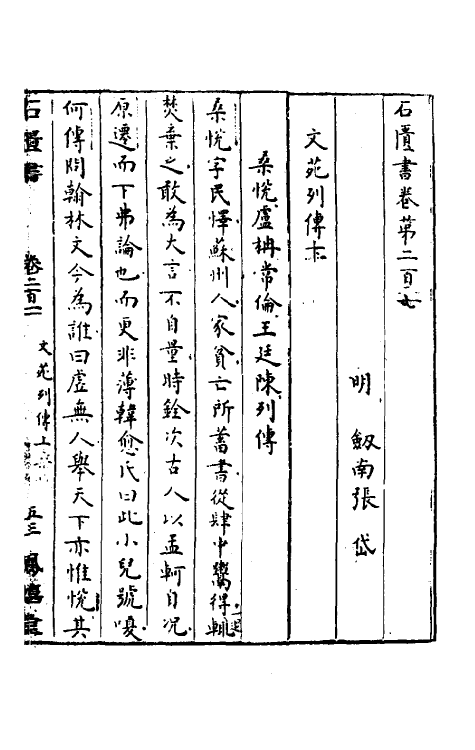 石匱書卷第二百七
明 劔南張岱
文苑列傳上
桑悅盧柟常倫王廷陳列傳
桑悅字民懌蘇州人家貧亡所蓄書從肆中鬻得輒
一過
焚棄之敢為大言不自量時銓次古人以孟軻自况
原遷而下弗論也而更非薄韓愈氏曰此小兒號嗄
何傳問翰林文今為誰曰虛無人舉天下亦惟悅其
石匱書 卷二百
文苑列傳上 五三